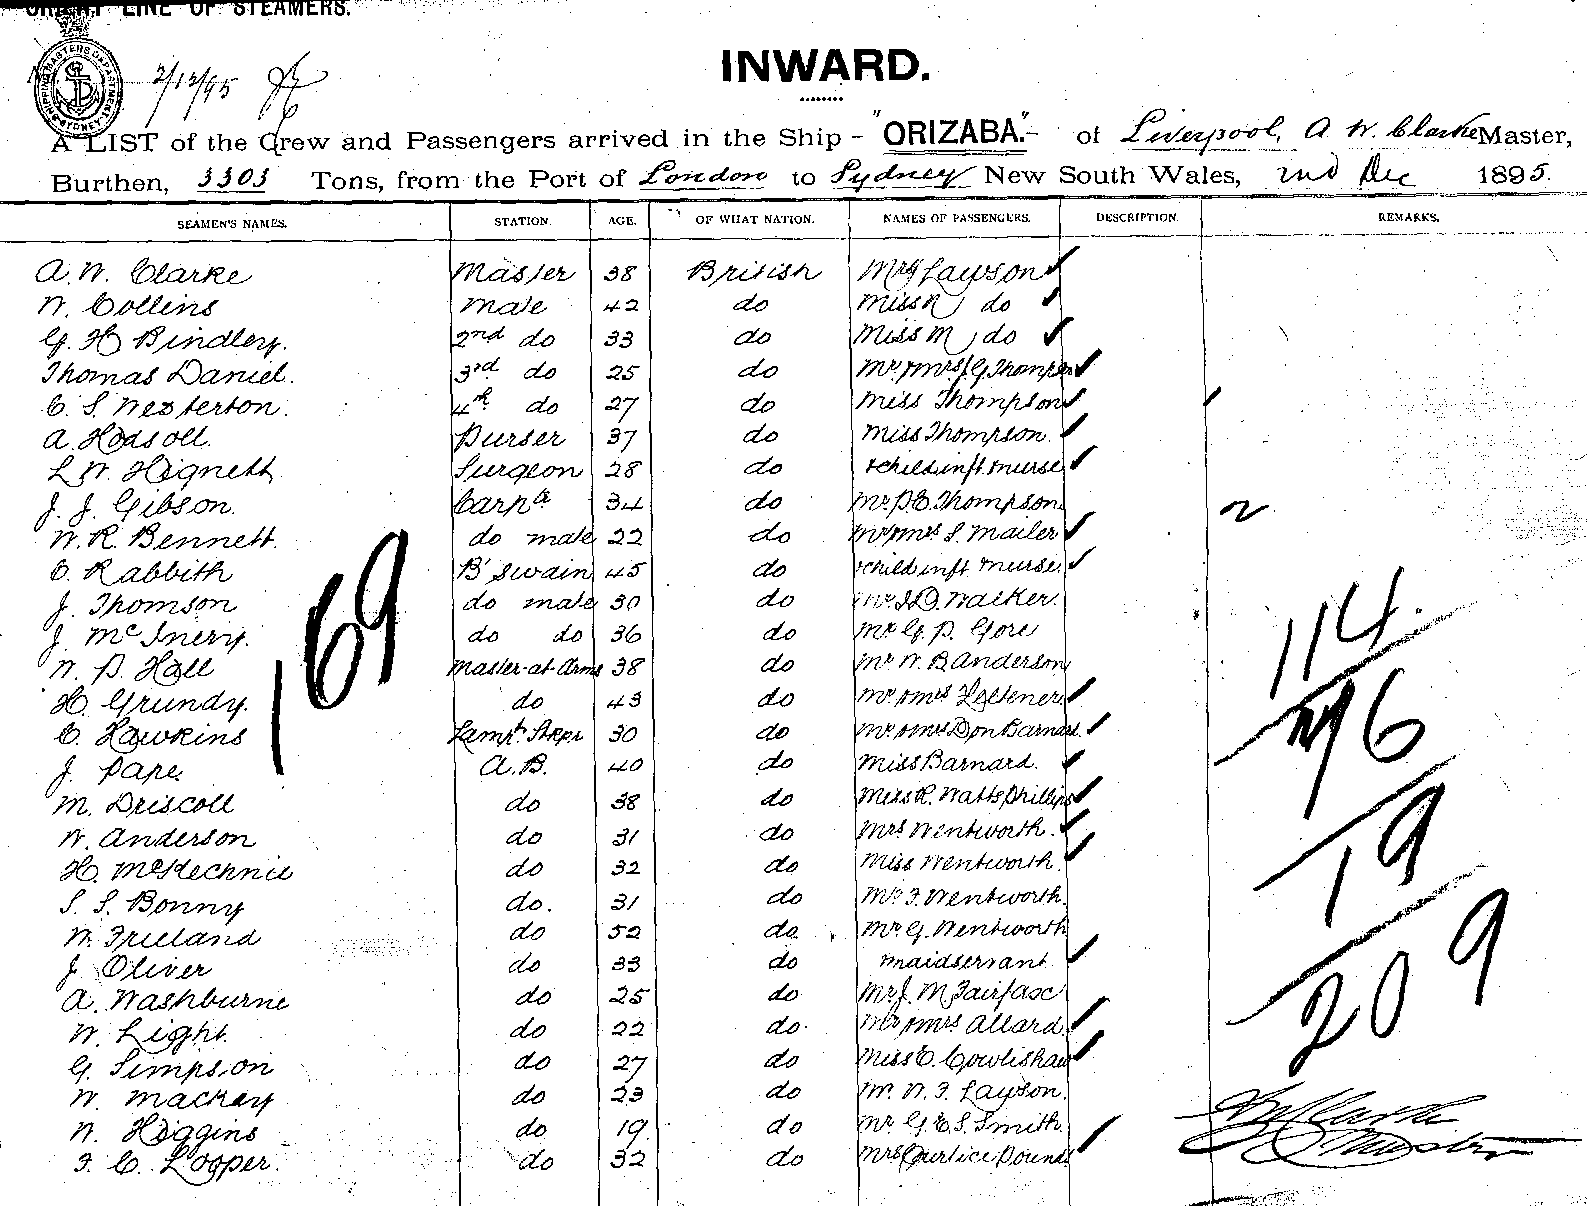 ORIENT LINE OF STEAMERS.
SHIPPING MASTERS DEPARTMENT SYDNEY
2/12/95
INWARD.
A LIST of the Crew and Passengers arrived in the Ship - "ORIZABA." - of Liverpool, A W. Clarke Master,
Burthen, 3303 Tons, from the Port of London to Sydney New South Wales, 2nd Dec 1895.
SEAMEN'S NAMES. STATION. AGE. OF WHAT NATION. NAMES OF PASSENGERS. DESCRIPTION. REMARKS.
A. W. Clarke Master 38 British Mrs Lawson
W. Collins Mate 42 do Miss N do
G. H Bindley. 2nd do 33 do Miss M do
Thomas Daniel. 3rd do 25 do Mr & Mrs J G Thompson
C. S. Westerton. 4th do 27 do Miss Thompson
A. Hodsoll. Purser 37 do Miss Thompson.
L W. Hignett Surgeon 28 do & child inft & nurse
J. J. Gibson. Carpr 34 do Mr. P. C. Thompson
W. R. Bennett. do mate 22 do Mr & Mrs S. Mailer
C. Rabbith B'swain 45 do & child inft & nurse
J. Thomson do mate 30 do Mr J. D. Walker.
J. McInery. do do 36 do Mr G. P. Gore
W. P. Hall Master-at-Arms 38 do Mr W. B. Anderson
H. Grundy. do 43 do Mr & Mrs
C. Hawkins Lamp 30 do Mr & Mrs Don Barnard
J. Pape. A.B. 40 do Miss Barnard.
M. Driscoll do 38 do Miss R. Watts Phillips
W. Anderson do 31 do Mrs Wentworth.
H. McKechnie do 32 do Miss Wentworth.
S. S. Bonny do. 31 do Mr F. Wentworth.
W. Freeland do 52 do. Mr G. Wentworth
J. Oliver do 33 do maidservant
A. Washburne do 25 do Mr J. M Fairfax
W. Light. do 22 do. Mr & Mrs Allard
G. Simpson do 27 do Miss C. Cowlishaw
W. Mackay do 23 do Mr. W. F. Layson.
W. Higgins do 19 do Mr G. E. S. Smith.
F. C. Looper. do 32 do Mrs Courtice Pounds
169
114
96
19
209
A W Clarke
Master